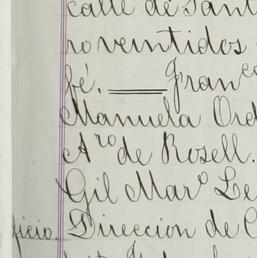 calle de Sant
ro veintidos
fé. Franco
Manuela Ord
Aro de Rosell.
Gil Maro Le
ficio Direccion de C